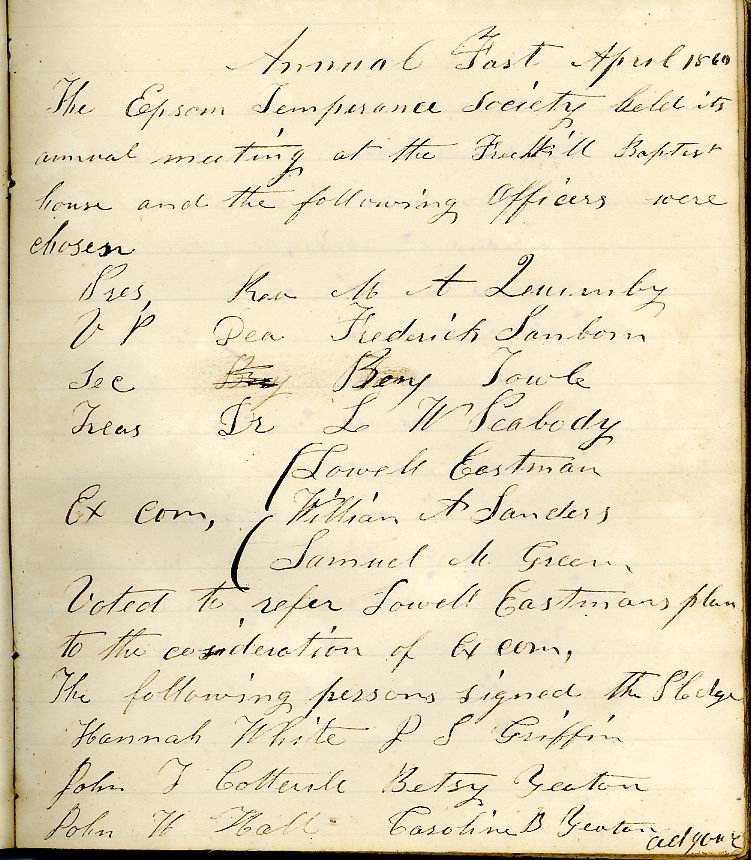 Annual Fast April 1860
The Epsom Temperance Society held its
annual meeting at the Freewill Baptist
house and the following Officers were
chosen
Pres, Rev M A Quimby
V P Dea Frederick Sanborn
Sec Benj Towle
Treas Dr L W Peabody
Lowell Eastman
Ex com, William A Sanders
Samuel M Green
Voted to refer Lowell Eastmans plan
to the cosideration of Ex com,
The following persons signed the Pledge
Hannah White J S Griffin
John T Cotterell Betsy Yeaton
John H Hall Caroline B Yeaton